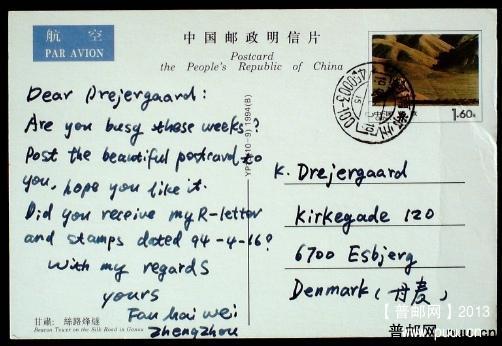 航 空
PAR AVION
中国邮政明信片
Postcard
the People's Republic of China
1.60元
450003
YP (10-9) 1994(B)
Dear Drejergaard:
Are you busy these weeks?
Post the beautiful postcard to
you, hope you like it.
Did you receive my R-letter
and stamps dated 94-4-16?
With my regards
yours
Fan hai wei
Zhengzhou
K. Drejergaard
Kirkegade 120
6700 Esbjerg
Denmark (丹麦)
甘肅: 絲路烽燧
Beacon Tower on the Silk Road in Gansu
【普邮网】2013
普邮网 puuu.cn